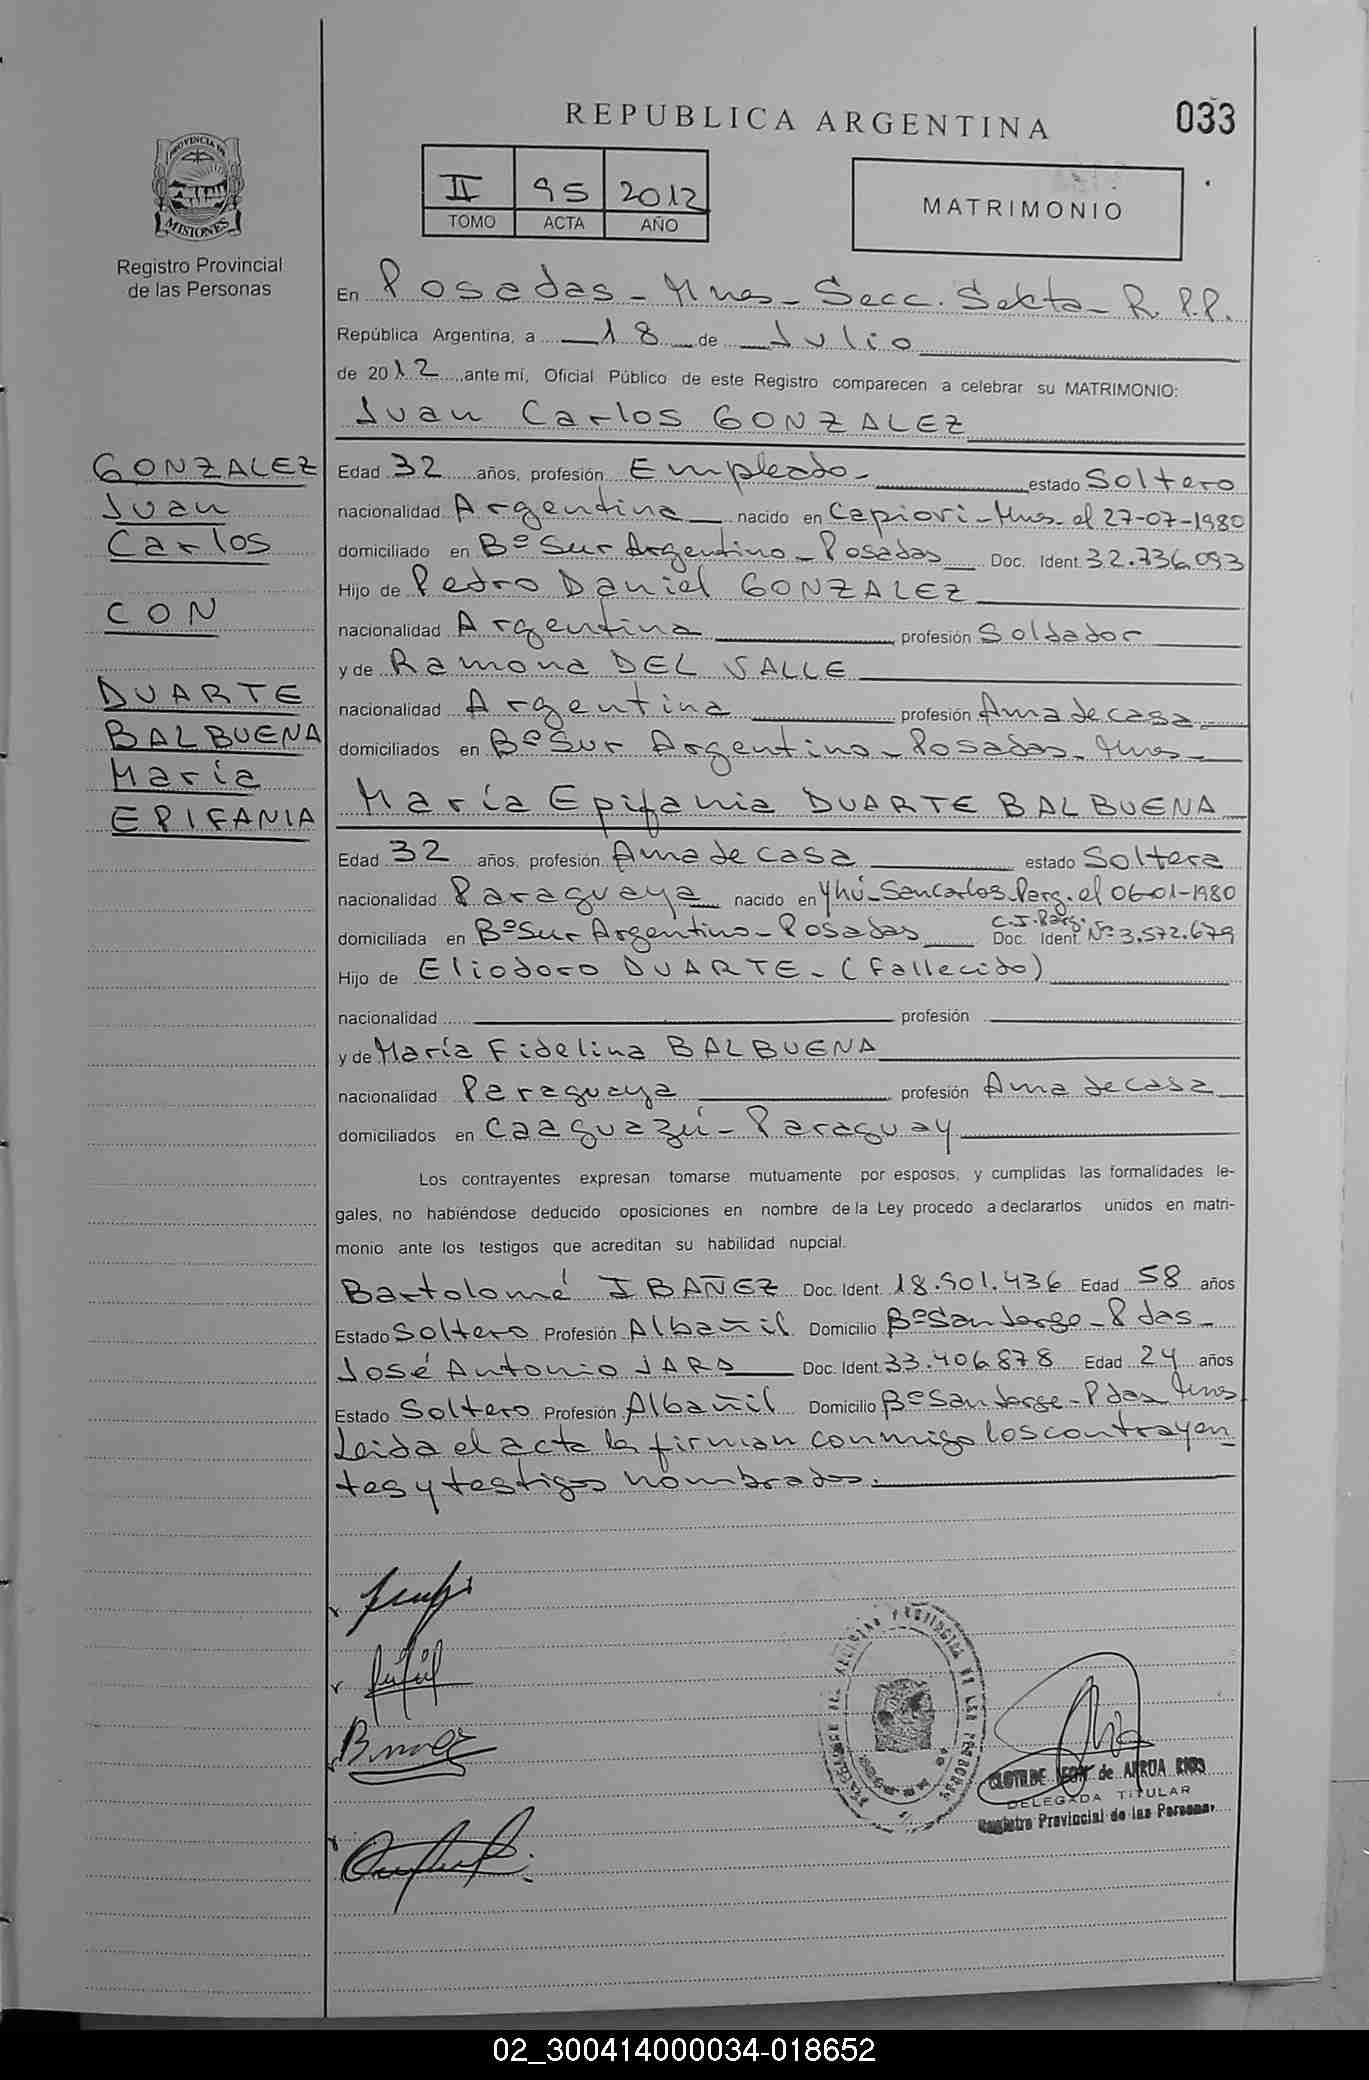 REPUBLICA ARGENTINA
033
PROVINCIA DE
MISIONES
Registro Provincial
de las Personas
II 95 2012
TOMO ACTA AÑO
MATRIMONIO
En Posadas - Mnes - Secc. Sexta - R.P.P.
República Argentina, a 18 de Julio
de 2012, ante mí, Oficial Público de este Registro comparecen a celebrar su MATRIMONIO:
Juan Carlos GONZALEZ
GONZALEZ
Juan
Carlos
CON
DUARTE
BALBUENA
María
EPIFANIA
Edad 32 años, profesión Empleado - estado Soltero
nacionalidad Argentina nacido en Capiovi - Mnes. el 27-07-1980
domiciliado en Bº Sur Argentino - Posadas Doc. Ident. 32.736.093
Hijo de Pedro Daniel GONZALEZ
nacionalidad Argentina profesión Soldador
y de Ramona DEL VALLE
nacionalidad Argentina profesión Ama de casa
domiciliados en Bº Sur Argentino - Posadas - Mnes -
María Epifania DUARTE BALBUENA
Edad 32 años, profesión Ama de casa estado Soltera
nacionalidad Paraguaya nacido en Yhú - San Carlos - Parg. el 06-01-1980
domiciliada en Bº Sur Argentino - Posadas C.I. Parg. Doc. Ident. Nº 3.572.679
Hijo de Eliodoro DUARTE - (fallecido)
nacionalidad profesión
y de María Fidelina BALBUENA
nacionalidad Paraguaya profesión Ama de casa
domiciliados en Caaguazú - Paraguay
Los contrayentes expresan tomarse mutuamente por esposos, y cumplidas las formalidades le-
gales, no habiéndose deducido oposiciones en nombre de la Ley procedo a declararlos unidos en matri-
monio ante los testigos que acreditan su habilidad nupcial.
Bartolomé IBAÑEZ Doc. Ident. 18.901.436 Edad 58 años
Estado Soltero Profesión Albañil Domicilio Bº San Jorge - Pdas -
José Antonio JARA Doc. Ident. 33.406.878 Edad 24 años
Estado Soltero Profesión Albañil Domicilio Bº San Jorge - Pdas Mnes
Leida el acta la firman conmigo los contrayen
tes y testigos nombrados.
CLOTILDE de ARRUA RIOS
DELEGADA TITULAR
Registro Provincial de las Personas
02_300414000034-018652